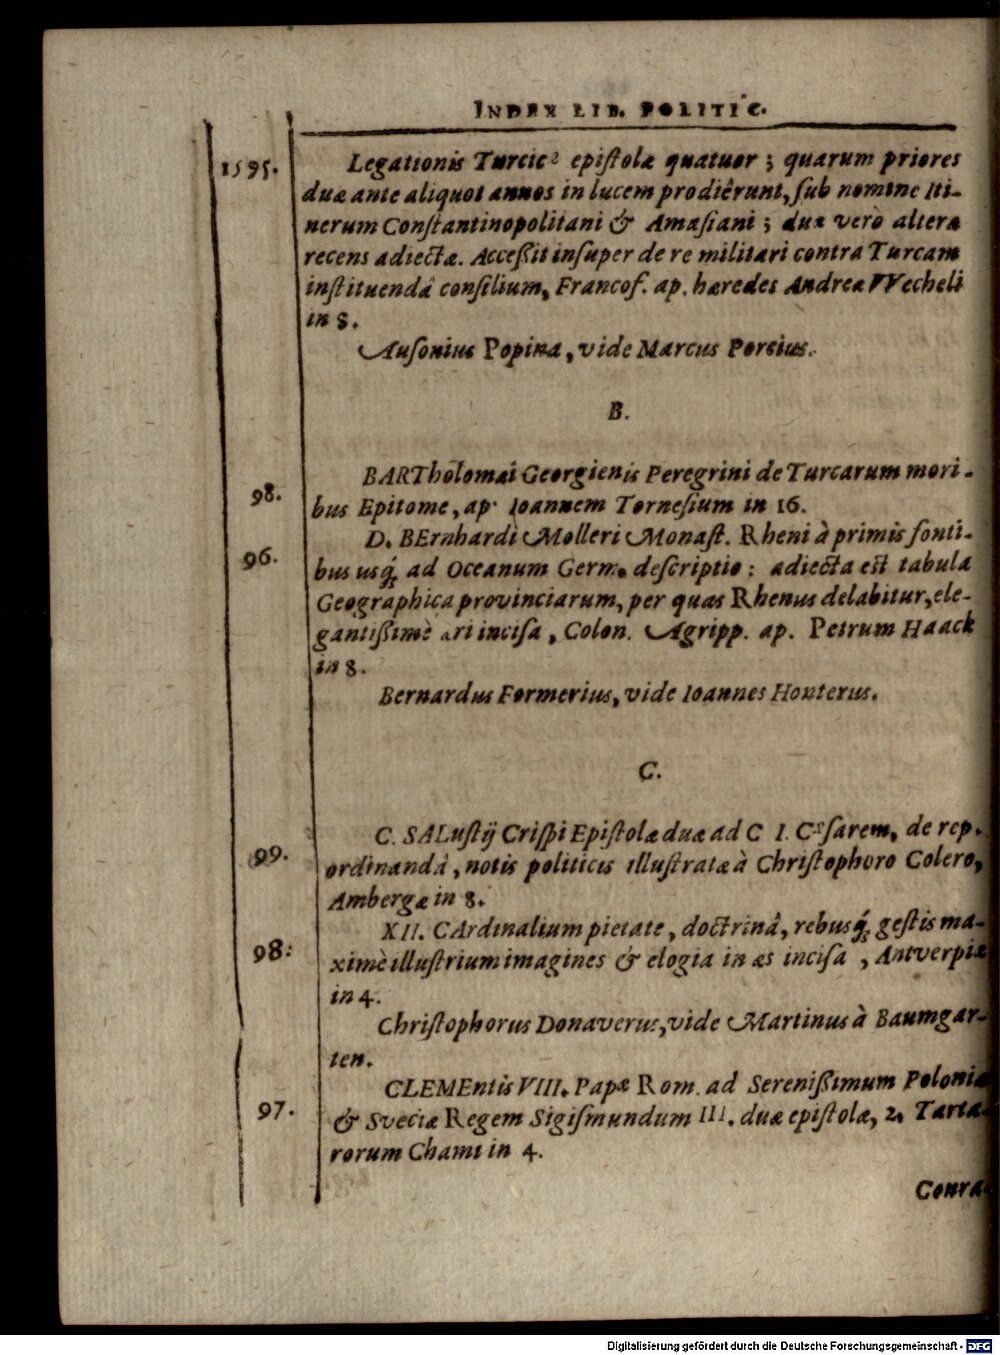 INDEX LIB. POLITIC.
1595. Legationis Turcicæ epistolæ quatuor ; quarum priores
duæ ante aliquot annos in lucem prodiêrunt, sub nomine Iti-
nerum Constantinopolitani & Amasiani ; duæ verò alteræ
recens adiectæ. Accessit insuper de re militari contra Turcam
instituendâ consilium, Francof. ap. hæredes Andreæ VVecheli
in 8.
Ausonius Popina, vide Marcus Porcius.
B.
98. BARTholomæi Georgienis Peregrini de Turcarum mori-
bus Epitome, ap. Ioannem Tornesium in 16.
96. D. BErnhardi Molleri Monast. Rheni à primis fonti-
bus usq́; ad Oceanum Germ. descriptio : adiecta est tabula
Geographica provinciarum, per quas Rhenus delabitur, ele-
gantissimè æri incisa, Colon. Agripp. ap. Petrum Haack
in 8.
Bernardus Formerius, vide Ioannes Honterus.
C.
99. C. SALustij Crispi Epistolæ duæ ad C. I. Cæsarem, de rep.
ordinandâ, notis politicis illustratæ à Christophoro Colero,
Ambergæ in 8.
98: XII. CArdinalium pietate, doctrinâ, rebusq́; gestis ma-
ximè illustrium imagines & elogia in æs incisa, Antverpiæ
in 4.
Christophorus Donaverus, vide Martinus à Baumgar-
ten.
97. CLEMEntis VIII. Papæ Rom. ad Serenissimum Poloniæ
& Sveciæ Regem Sigismundum III. duæ epistolæ, 2. Tarta-
rorum Chami in 4.
Conra-
Digitalisierung gefördert durch die Deutsche Forschungsgemeinschaft - DFG